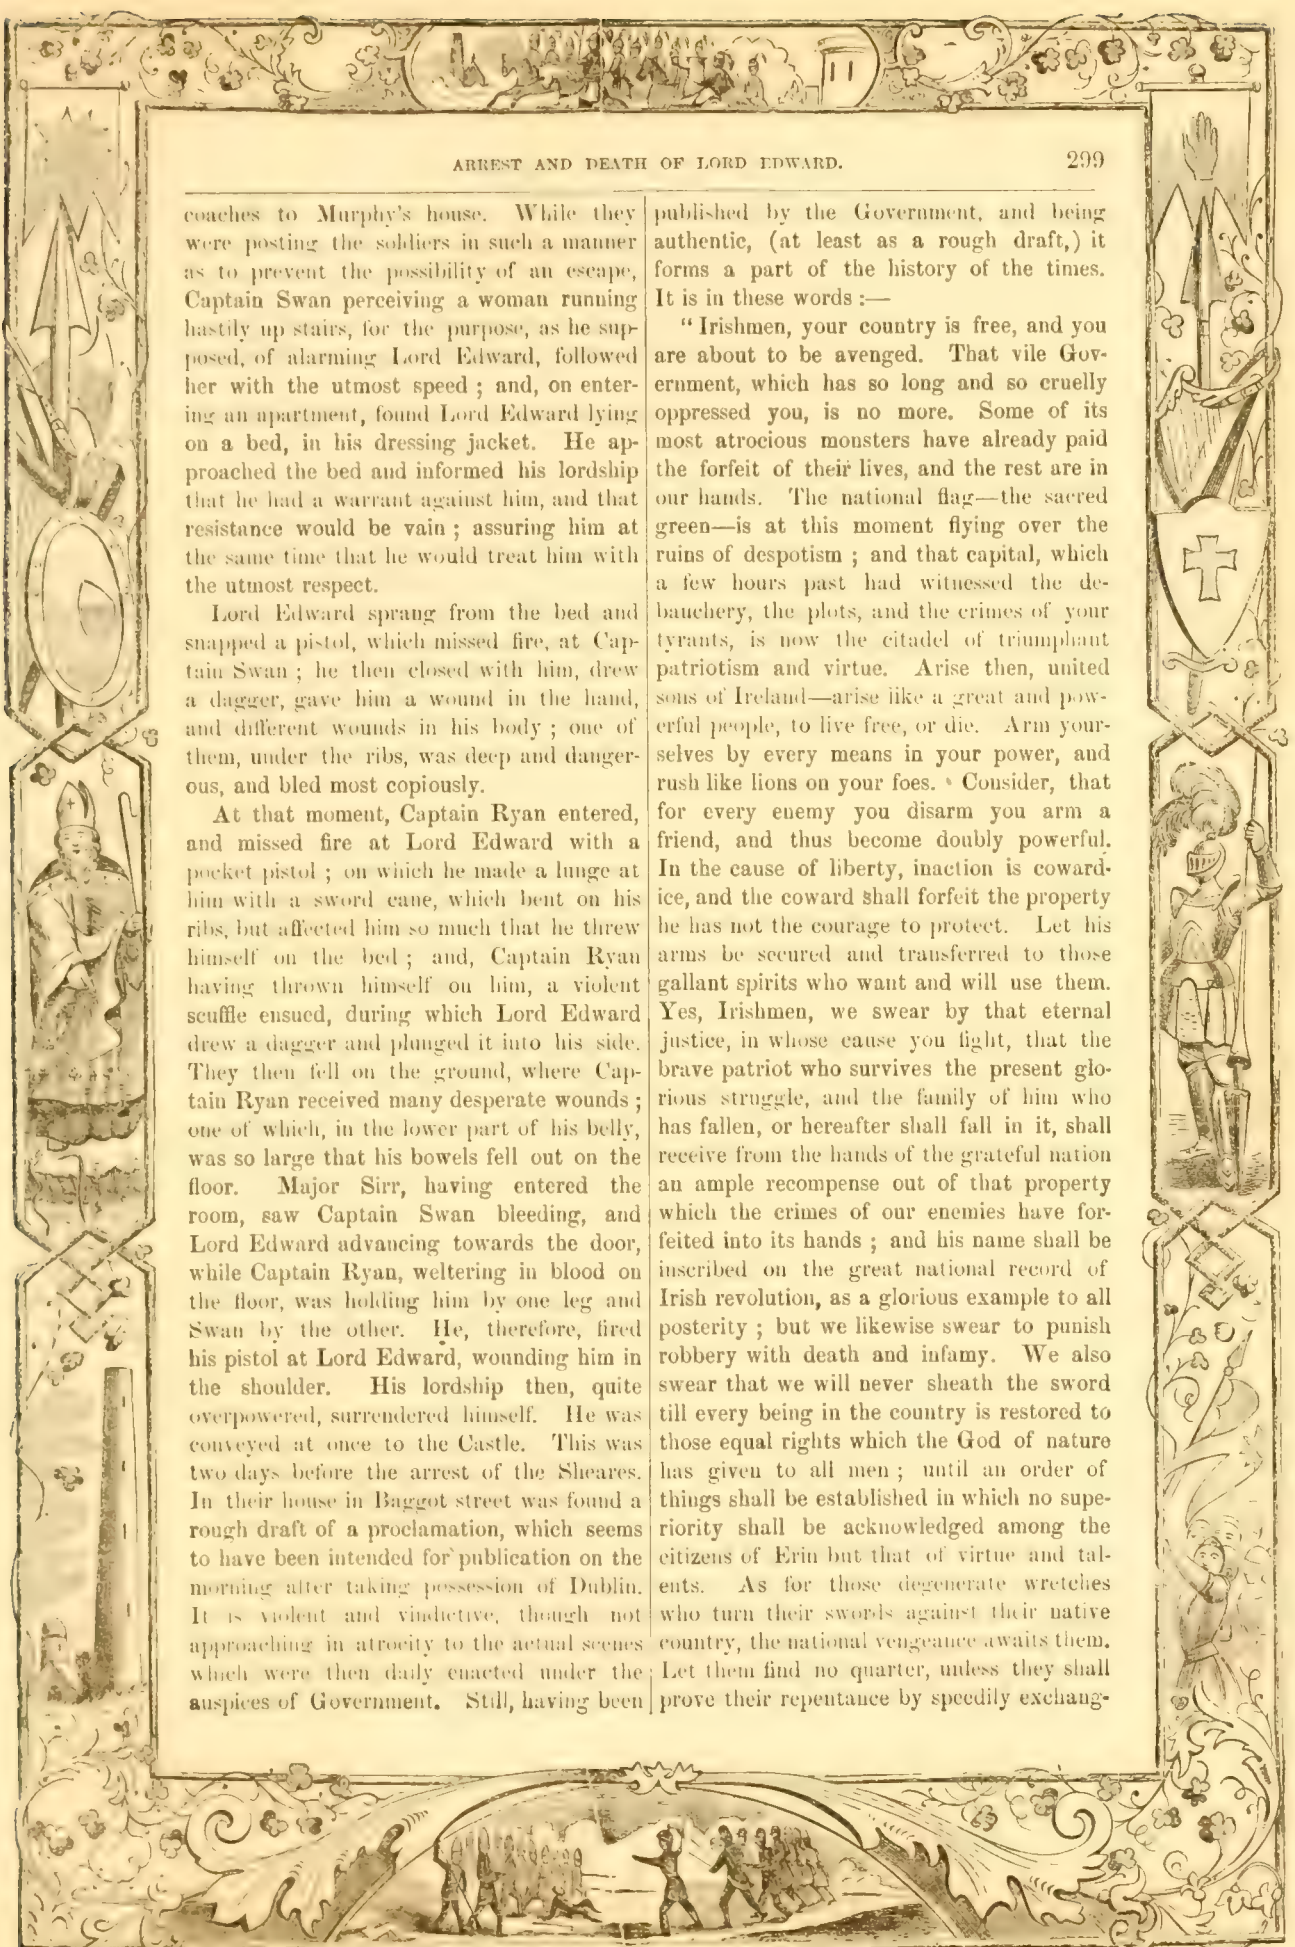 ARREST AND DEATH OF LORD EDWARD. 299
coaches to Murphy's house. While they
were posting the soldiers in such a manner
as to prevent the possibility of an escape,
Captain Swan perceiving a woman running
hastily up stairs, for the purpose, as he sup-
posed, of alarming Lord Edward, followed
her with the utmost speed ; and, on enter-
ing an apartment, found Lord Edward lying
on a bed, in his dressing jacket. He ap-
proached the bed and informed his lordship
that he had a warrant against him, and that
resistance would be vain ; assuring him at
the same time that he would treat him with
the utmost respect.
Lord Edward sprang from the bed and
snapped a pistol, which missed fire, at Cap-
tain Swan ; he then closed with him, drew
a dagger, gave him a wound in the hand,
and different wounds in his body ; one of
them, under the ribs, was deep and danger-
ous, and bled most copiously.
At that moment, Captain Ryan entered,
and missed fire at Lord Edward with a
pocket pistol ; on which he made a lunge at
him with a sword cane, which bent on his
ribs, but affected him so much that he threw
himself on the bed ; and, Captain Ryan
having thrown himself on him, a violent
scuffle ensued, during which Lord Edward
drew a dagger and plunged it into his side.
They then fell on the ground, where Cap-
tain Ryan received many desperate wounds ;
one of which, in the lower part of his belly,
was so large that his bowels fell out on the
floor. Major Sirr, having entered the
room, saw Captain Swan bleeding, and
Lord Edward advancing towards the door,
while Captain Ryan, weltering in blood on
the floor, was holding him by one leg and
Swan by the other. He, therefore, fired
his pistol at Lord Edward, wounding him in
the shoulder. His lordship then, quite
overpowered, surrendered himself. He was
conveyed at once to the Castle. This was
two days before the arrest of the Sheares.
In their house in Baggot street was found a
rough draft of a proclamation, which seems
to have been intended for publication on the
morning after taking possession of Dublin.
It is violent and vindictive, though not
approaching in atrocity to the actual scenes
which were then daily enacted under the
auspices of Government. Still, having been
published by the Government, and being
authentic, (at least as a rough draft,) it
forms a part of the history of the times.
It is in these words :—
“ Irishmen, your country is free, and you
are about to be avenged. That vile Gov-
ernment, which has so long and so cruelly
oppressed you, is no more. Some of its
most atrocious monsters have already paid
the forfeit of their lives, and the rest are in
our hands. The national flag—the sacred
green—is at this moment flying over the
ruins of despotism ; and that capital, which
a few hours past had witnessed the de-
bauchery, the plots, and the crimes of your
tyrants, is now the citadel of triumphant
patriotism and virtue. Arise then, united
sons of Ireland—arise like a great and pow-
erful people, to live free, or die. Arm your-
selves by every means in your power, and
rush like lions on your foes. Consider, that
for every enemy you disarm you arm a
friend, and thus become doubly powerful.
In the cause of liberty, inaction is coward-
ice, and the coward shall forfeit the property
he has not the courage to protect. Let his
arms be secured and transferred to those
gallant spirits who want and will use them.
Yes, Irishmen, we swear by that eternal
justice, in whose cause you fight, that the
brave patriot who survives the present glo-
rious struggle, and the family of him who
has fallen, or hereafter shall fall in it, shall
receive from the hands of the grateful nation
an ample recompense out of that property
which the crimes of our enemies have for-
feited into its hands ; and his name shall be
inscribed on the great national record of
Irish revolution, as a glorious example to all
posterity ; but we likewise swear to punish
robbery with death and infamy. We also
swear that we will never sheath the sword
till every being in the country is restored to
those equal rights which the God of nature
has given to all men ; until an order of
things shall be established in which no supe-
riority shall be acknowledged among the
citizens of Erin but that of virtue and tal-
ents. As for those degenerate wretches
who turn their swords against their native
country, the national vengeance awaits them.
Let them find no quarter, unless they shall
prove their repentance by speedily exchang-